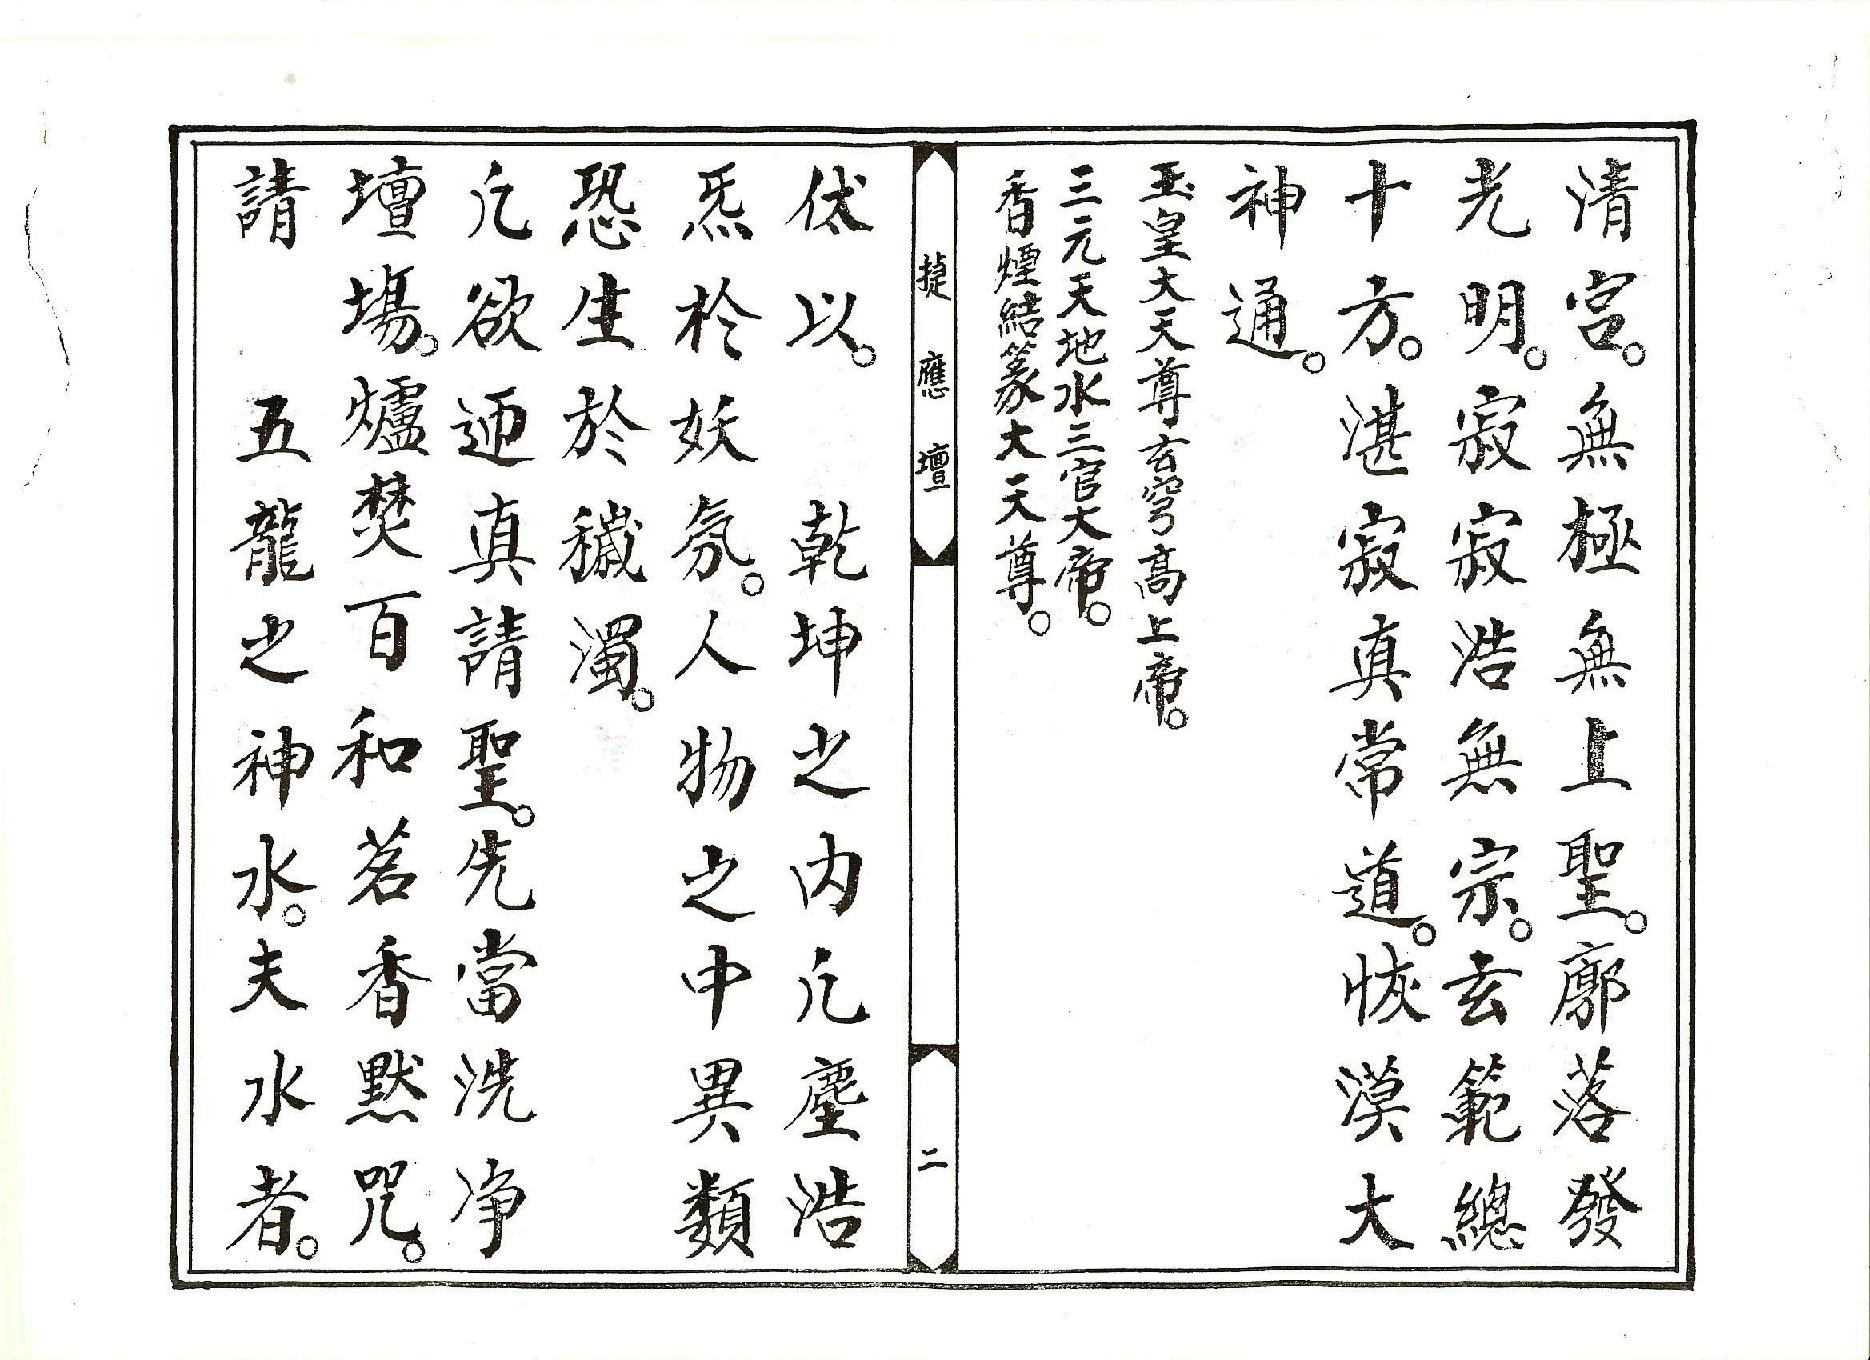 清宮。無極無上聖。廓落發
光明。寂寂浩無宗。玄範總
十方。湛寂真常道。恢漠大
神通。
玉皇大天尊玄穹高上帝。
三元天地水三官大帝。
香煙結篆大天尊。
㨗應壇
二
伏以。乾坤之內凢塵浩
炁於妖氛。人物之中異類
恐生於穢濁。
凢欲迎真請聖。先當洗净
壇場。爐焚百和茗香黙咒。
請 五龍之神水。夫水者。